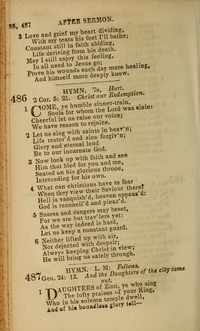 88, 487 AFTER SERMON.
3 Love and grief my heart dividing,
With my tears his feet I'll bathe;
Constant still in faith abiding,
Life deriving from his death.
May I still enjoy this feeling,
In all need to Jesus go;
Prove his wounds each day more healing,
And himself more deeply know.
HYMN. 7s, Hart.
486 2 Cor. 5: 21. Christ our Redemption.
1 COME, ye humble sinner-train,
Souls for whom the Lord was slain:
Cheerful let us raise our voice;
We have reason to rejoice.
2 Let us sing with saints in heav'n;
Life restor'd and sins forgiv'n;
Glory and eternal laud
Be to our incarnate God.
3 Now look up with faith and see
Him that bled for you and me,
Seated on his glorious throne,
Interceding for his own.
4 What can christians have to fear
When they view their Saviour there?
Hell is vanquish'd, heaven appeas'd:
God is reconcil'd and pleas'd.
5 Snares and dangers may beset,
For we are but trav'lers yet:
As the way indeed is hard,
Let us keep a constant guard.
6 Neither lifted up with air,
Nor dejected with despair;
Always keeping Christ in view;
He will bring us safely through.
HYMN. L. M: Fellows.
487 Gen. 24: 13. And the Daughters of the city came
out.
1 DAUGHTERS of Zion, ye who sing
The lofty praises of your King,
Who in his solemn temple dwell,
And of his boundless glory tell—